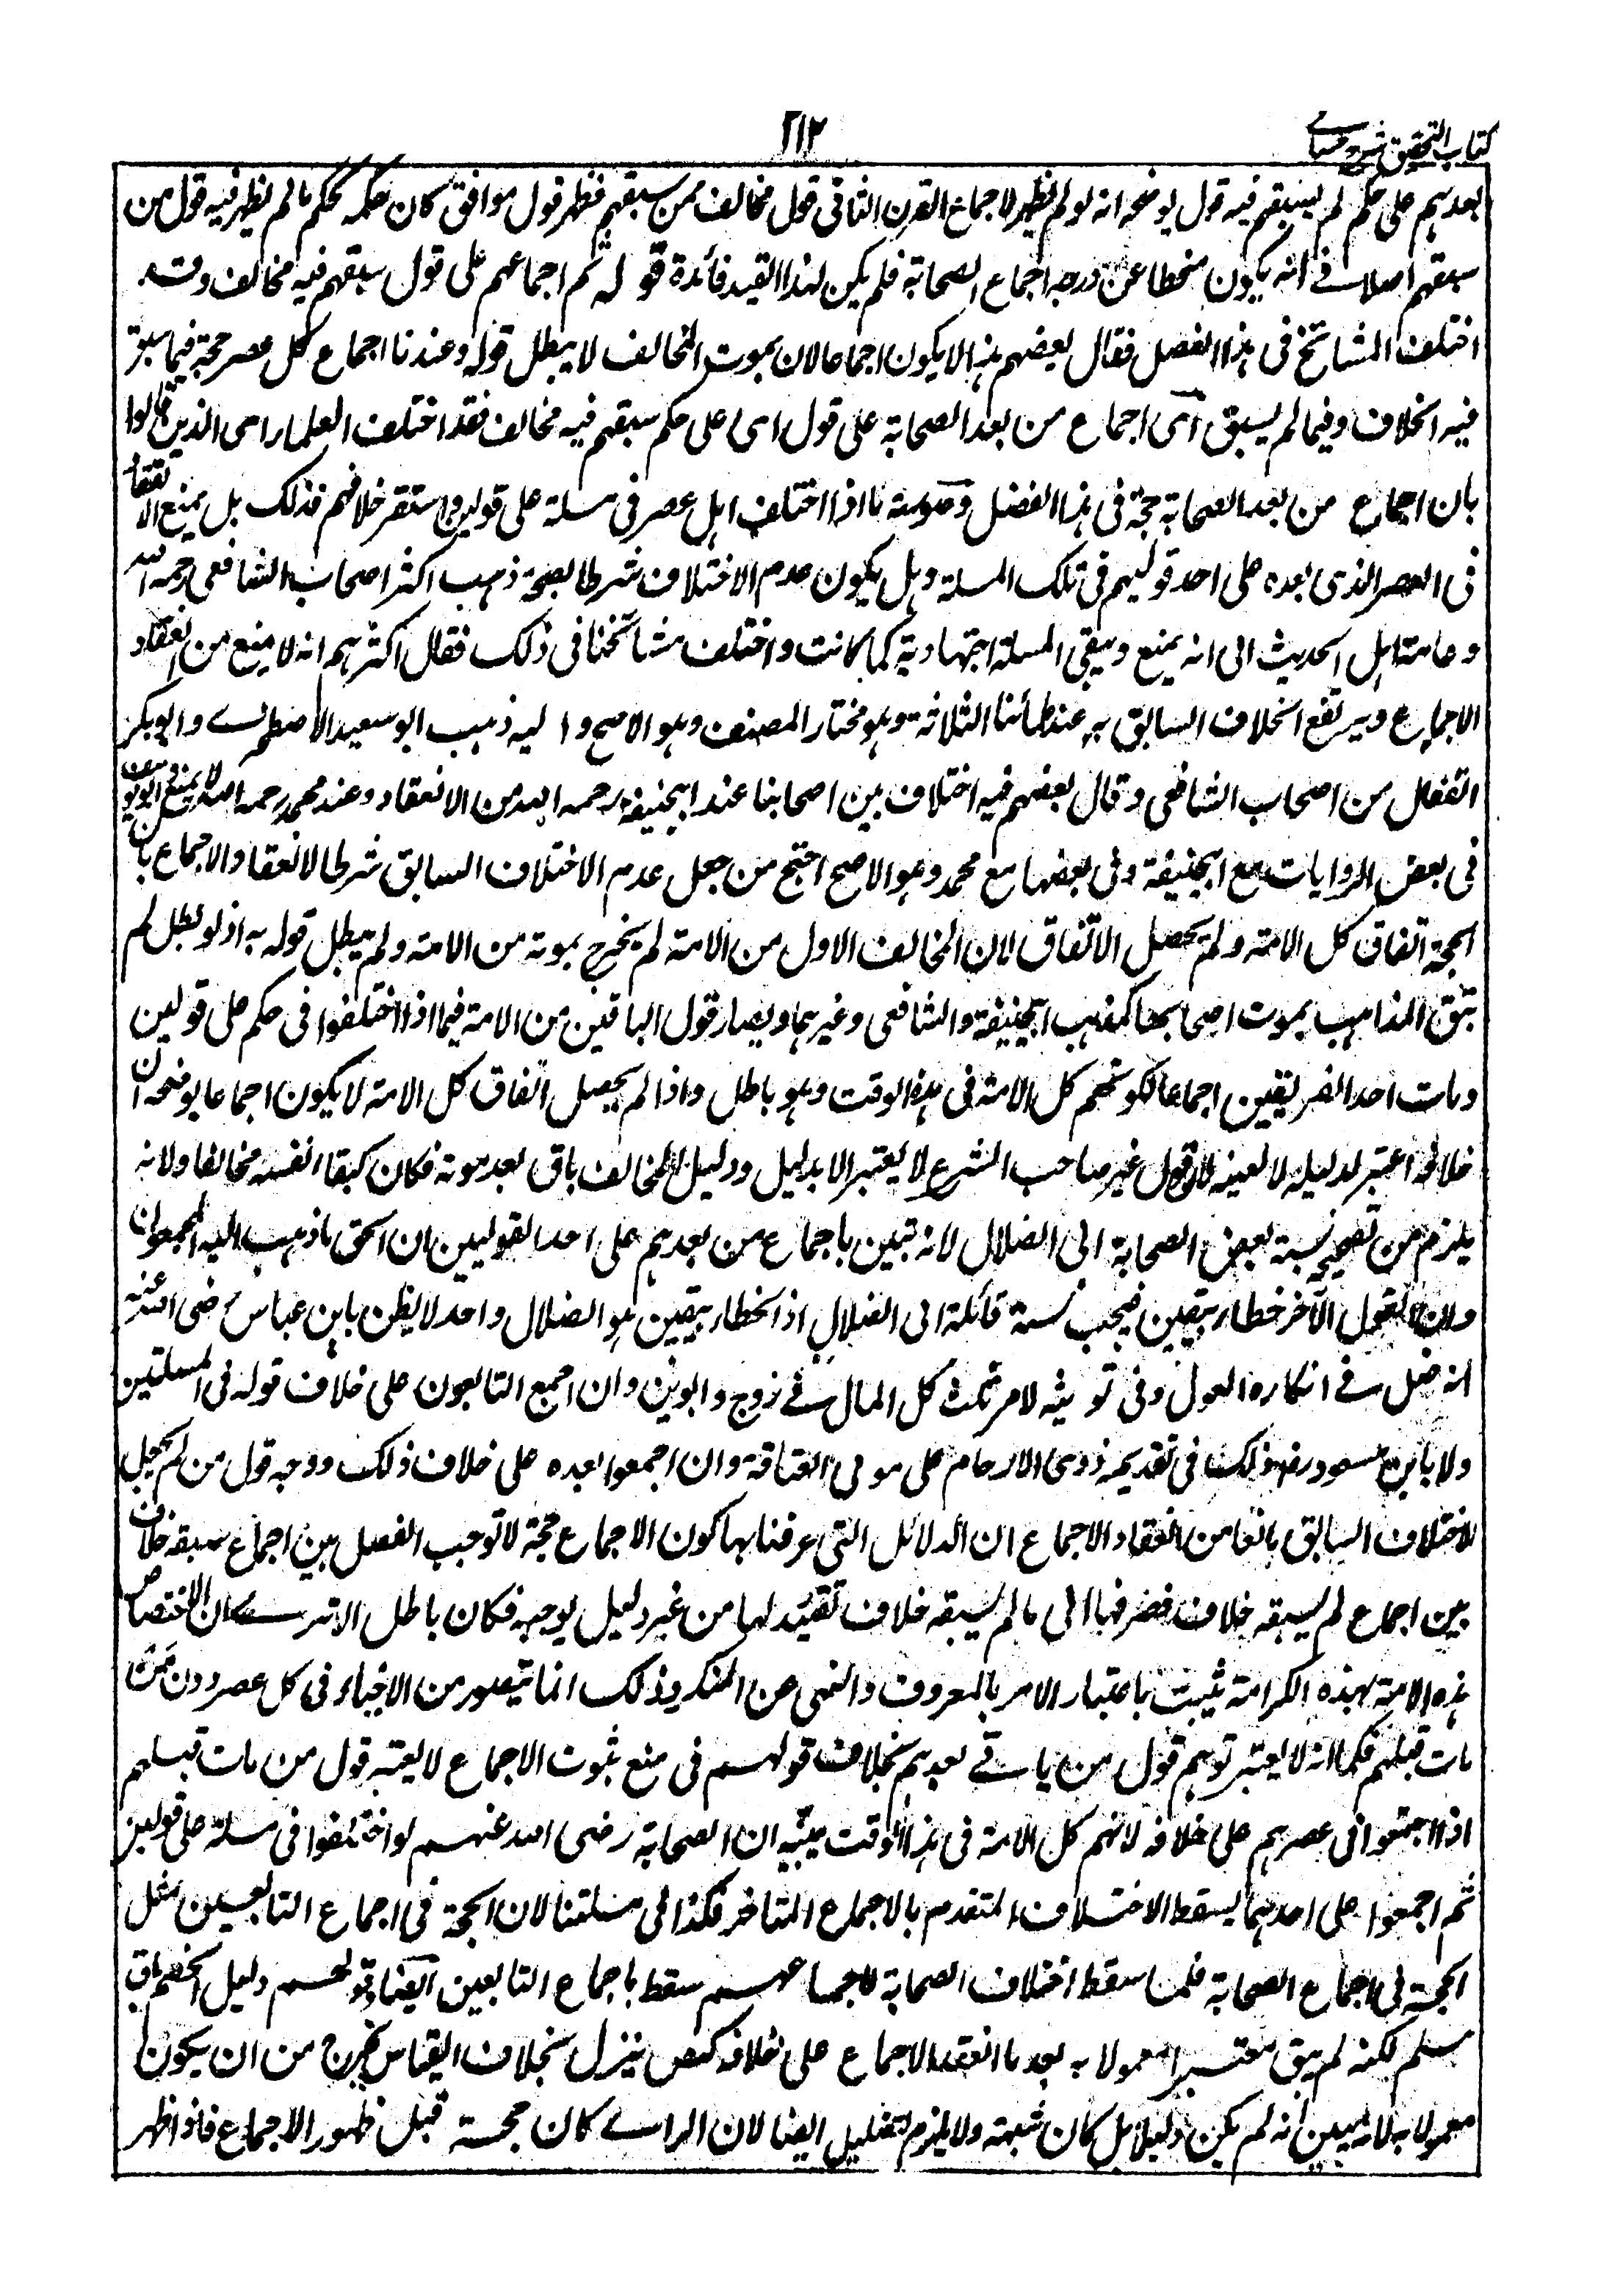 كتاب التحقيق شرح حسامى
٢١٢
بعدهم على حكم لم يسبقهم فيه قول يوضحه انه لو لم يظهر لاجماع القرن الثانى قول مخالف ممن سبقهم فظهر قول موافق كان حكمه كحكم ما لم يظهر فيه قول من
سبقهم اصلا فى انه يكون منحطا عن درجة اجماع الصحابة فلم يكن لهذا القيد فائدة قوله ثم اجماعهم على قول سبقهم فيه مخالف وقد
اختلف المشائخ فى هذا الفصل فقال بعضهم هذا لا يكون اجماعا لان بموت المخالف لا يبطل قوله وعندنا اجماع كل عصر حجة فيما سبق
فيه الخلاف وفيما لم يسبق اى اجماع من بعد الصحابة على قول اى على حكم سبقهم فيه مخالف فقد اختلف العلماء اى الذين قالوا
بان اجماع من بعد الصحابة حجة فى هذا الفصل وصورته ما اذا اختلف اهل عصر فى مسئلة على قولين واستقر خلافهم فذلك هل يمنع الاتفاق
فى العصر الذى بعده على احد قوليهم فى تلك المسئلة وهل يكون عدم الاختلاف شرطا لصحته ذهب اكثر اصحاب الشافعى رحمه الله
وعامة اهل الحديث الى انه يمنع ويبقى المسئلة اجتهادية كما كانت واختلف مشائخنا فى ذلك فقال اكثرهم انه لا يمنع من انعقاد
الاجماع ويرتفع الخلاف السابق به عند علمائنا الثلاثة وهو مختار المصنف وهو الاصح واليه ذهب ابو سعيد الاصطخرى وابوبكر
القفال من اصحاب الشافعى وقال بعضهم فيه اختلاف بين اصحابنا عند ابيحنيفة رحمه الله من الانعقاد وعند محمد رحمه الله لا يمنع وابو يوسف
فى بعض الروايات مع ابيحنيفة وفى بعضها مع محمد وهو الاصح احتج من جعل عدم الاختلاف السابق شرطا لانعقاد الاجماع بان
الحجة اتفاق كل الامة ولم يحصل الاتفاق لان المخالف الاول من الامة لم يخرج بموته من الامة ولم يبطل قوله به اذ لو بطل لم
تبق المذاهب بموت اصحابها كمذهب ابيحنيفة والشافعى وغيرهما ويصار قول الباقين من الامة فيما اذا اختلفوا فى حكم على قولين
ومات احد الفريقين اجماعا لكونهم كل الامة فى هذا الوقت وهو باطل واذا لم يحصل اتفاق كل الامة لا يكون اجماعا يوضحه ان
خلافه اعتبر لدليله لا لعينه لان قول غير صاحب الشرع لا يعتبر الا بدليل ودليل المخالف باق بعد موته فكان كبقاء نفسه مخالفا ولانه
يلزم من تصحيحه نسبة بعض الصحابة الى الضلال لانه تبين باجماع من بعدهم على احد القولين ان الحق ما ذهب اليه المجمعون
وان القول الآخر خطاء بيقين فيجب نسبة قائله الى الضلال اذ الخطاء بيقين هو الضلال واحد لا يظن بابن عباس رضى الله عنه
انه ضل فى انكاره العول وفى توريثه لام ثلث كل المال فى زوج وابوين وان اجمع التابعون على خلاف قوله فى المسلتين
ولا بابن مسعود رضى ذلك فى تقديمه ذوى الارحام على مولى العتاقة وان اجمعوا بعده على خلاف ذلك ووجه قول من لم يجعل
الاختلاف السابق مانعا من انعقاد الاجماع ان الدلائل التى عرفنا بها كون الاجماع حجة لا توجب الفصل بين اجماع سبقه خلاف
بين اجماع لم يسبقه خلاف فصرفها الى ما لم يسبقه خلاف تقييد لها من غير دليل يوجبه فكان باطلا الا ترى ان الاختصاص
هذه الامة بهذه الكرامة ثبت باعتبار الامر بالمعروف والنهى عن المنكر وذلك انما يتصور من الاحياء فى كل عصر دون من
مات قبلهم فكما انه لا يعتبر توهم قول من ياتى بعدهم بخلاف قولهم فى منع ثبوت الاجماع لا يعتبر قول من مات قبلهم
اذا اجتمعوا فى عصرهم على خلافه لانهم كل الامة فى هذا الوقت يبينه ان الصحابة رضى الله عنهم لو اختلفوا فى مسلة على قولين
ثم اجمعوا على احدهما يسقط الاختلاف المتقدم بالاجماع المتاخر فكذا فى مسئلتنا لان الحجة فى اجماع التابعين مثل
الحجة فى اجماع الصحابة فلما سقط اختلاف الصحابة باجماعهم سقط باجماع التابعين ايضا وقولهم دليل الخصم باق
مسلم لكنه لم يبق معتبرا معمولا به بعد ما انعقد الاجماع على خلافه كنص ينزل بخلاف القياس يخرج من ان يكون
معمولا به لانه تبين انه لم يكن دليلا بل كان شبهة ولا يلزم تضليل ايضا لان الراى كان حجة قبل ظهور الاجماع فاذا ظهر